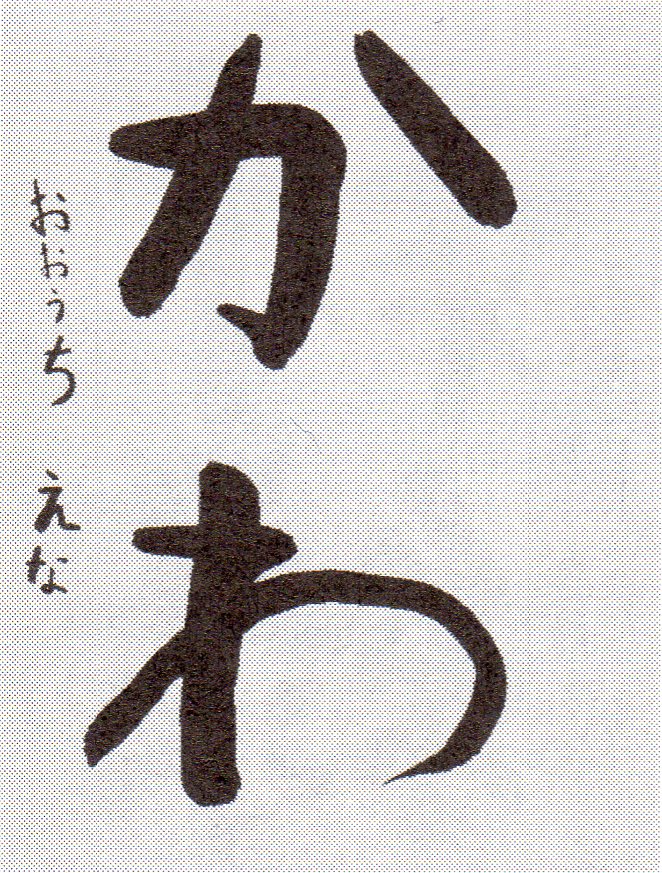 かわ
おおうち えな